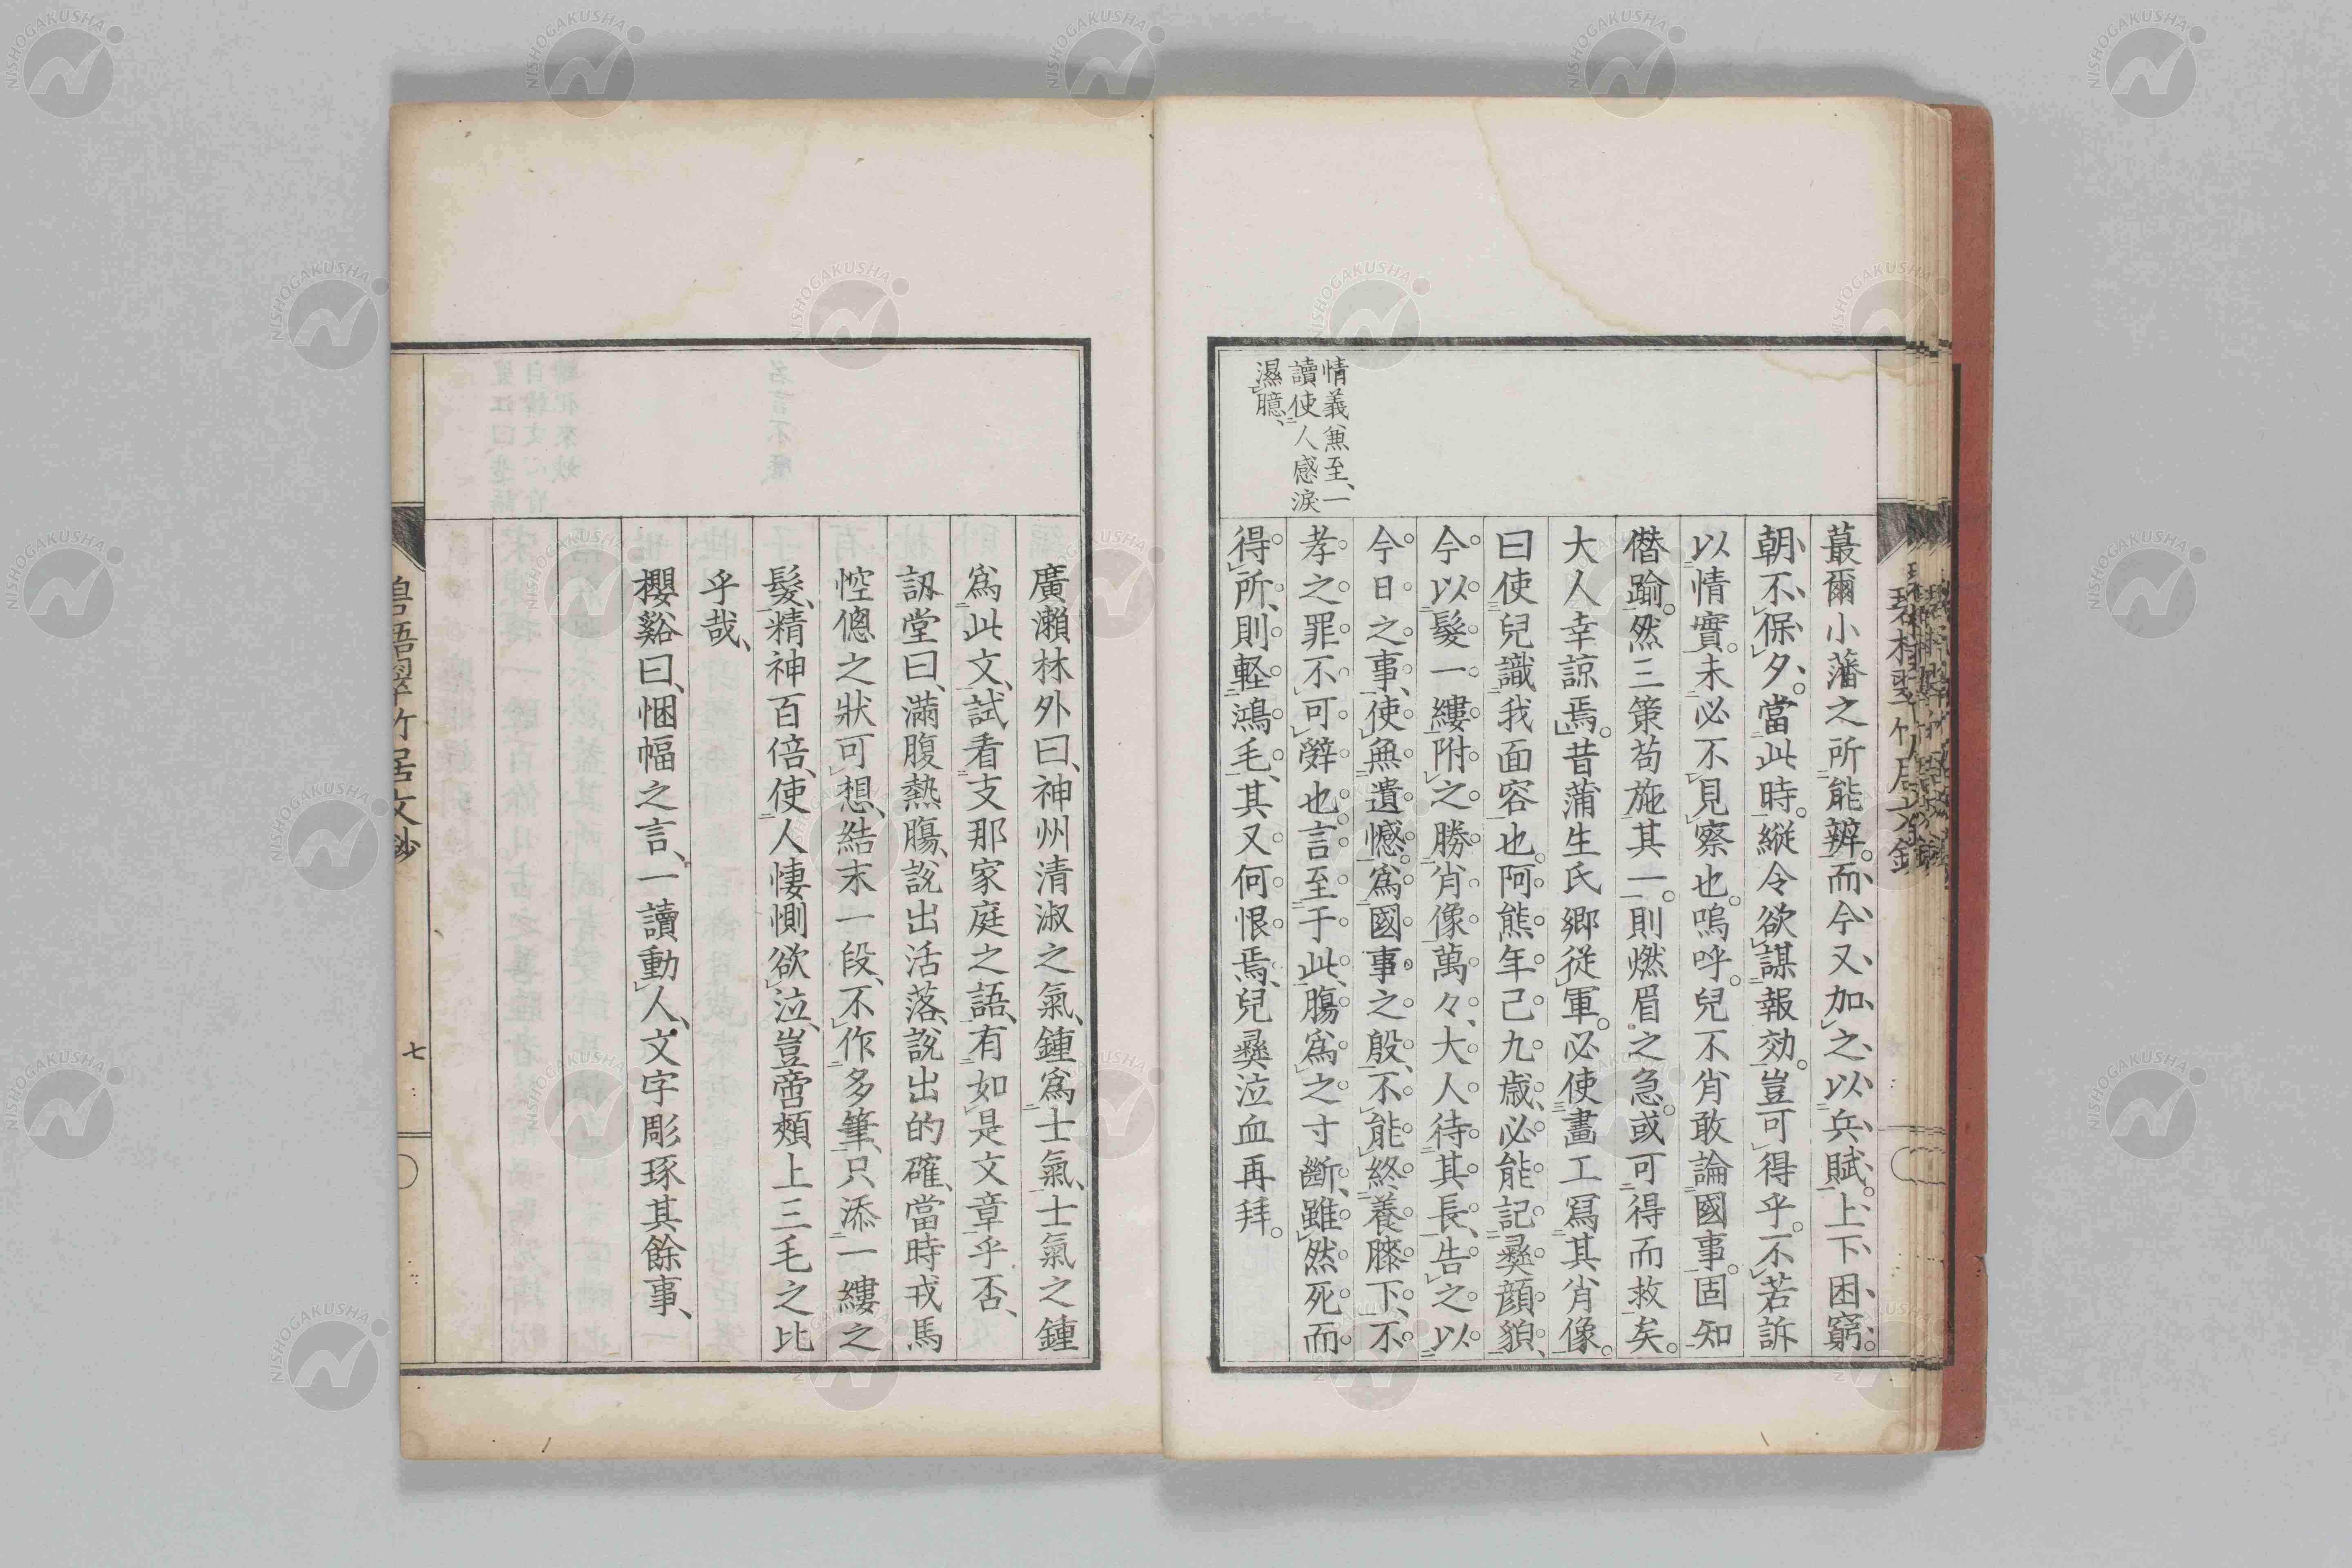 情義兼至、一
讀使人感淚
濕臆、
蕞爾小藩之所能辨。而今又加之以兵賦。上下困窮。
朝不保夕。當此時。縱令欲謀報効。豈可得乎。不若訴
以情實。未必不見察也。嗚呼。兒不肖敢論國事。固知
僭踰。然三策苟施其一。則燃眉之急。或可得而救矣。
大人幸諒焉。昔蒲生氏鄉從軍。必使畫工寫其肖像。
曰使兒識我面容也。阿熊年已九歲、必能記彝顏貌、
今以髮一縷附之。勝肖像萬々、大人待其長、告之以
今日之事、使無遺憾。爲國事之殷、不能終養膝下、不
孝之罪不可辭也。言至于此、腸爲之寸斷、雖然死而
得所、則軽鴻毛、其又何恨焉、兒彝泣血再拜。
廣瀨林外曰、神州清淑之氣、鍾爲士氣、士氣之鍾
爲此文、試看支那家庭之語、有如是文章乎否、
訒堂曰、滿腹熱腸、說出活落、說出的確、當時戎馬
悾傯之狀可想、結末一段、不作多筆、只添一縷之
髮、精神百倍、使人悽惻欲泣、豈啻頰上三毛之比
乎哉、
櫻谿曰、悃愊之言、一讀動人、文字彫琢其餘事、
碧梧翠竹居文鈔
七